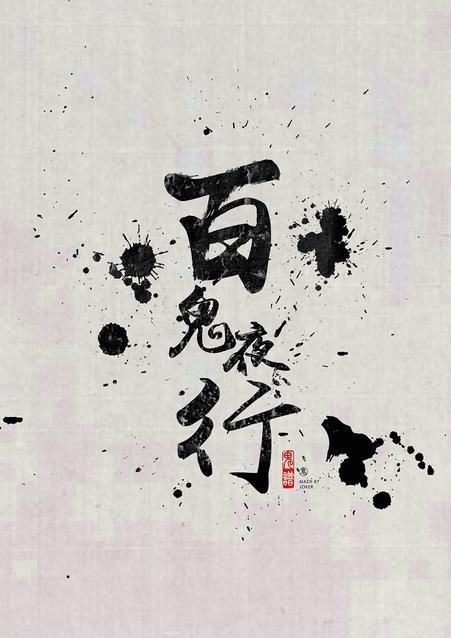 百
鬼夜
行
鬼譜
MADE BY
JOKER